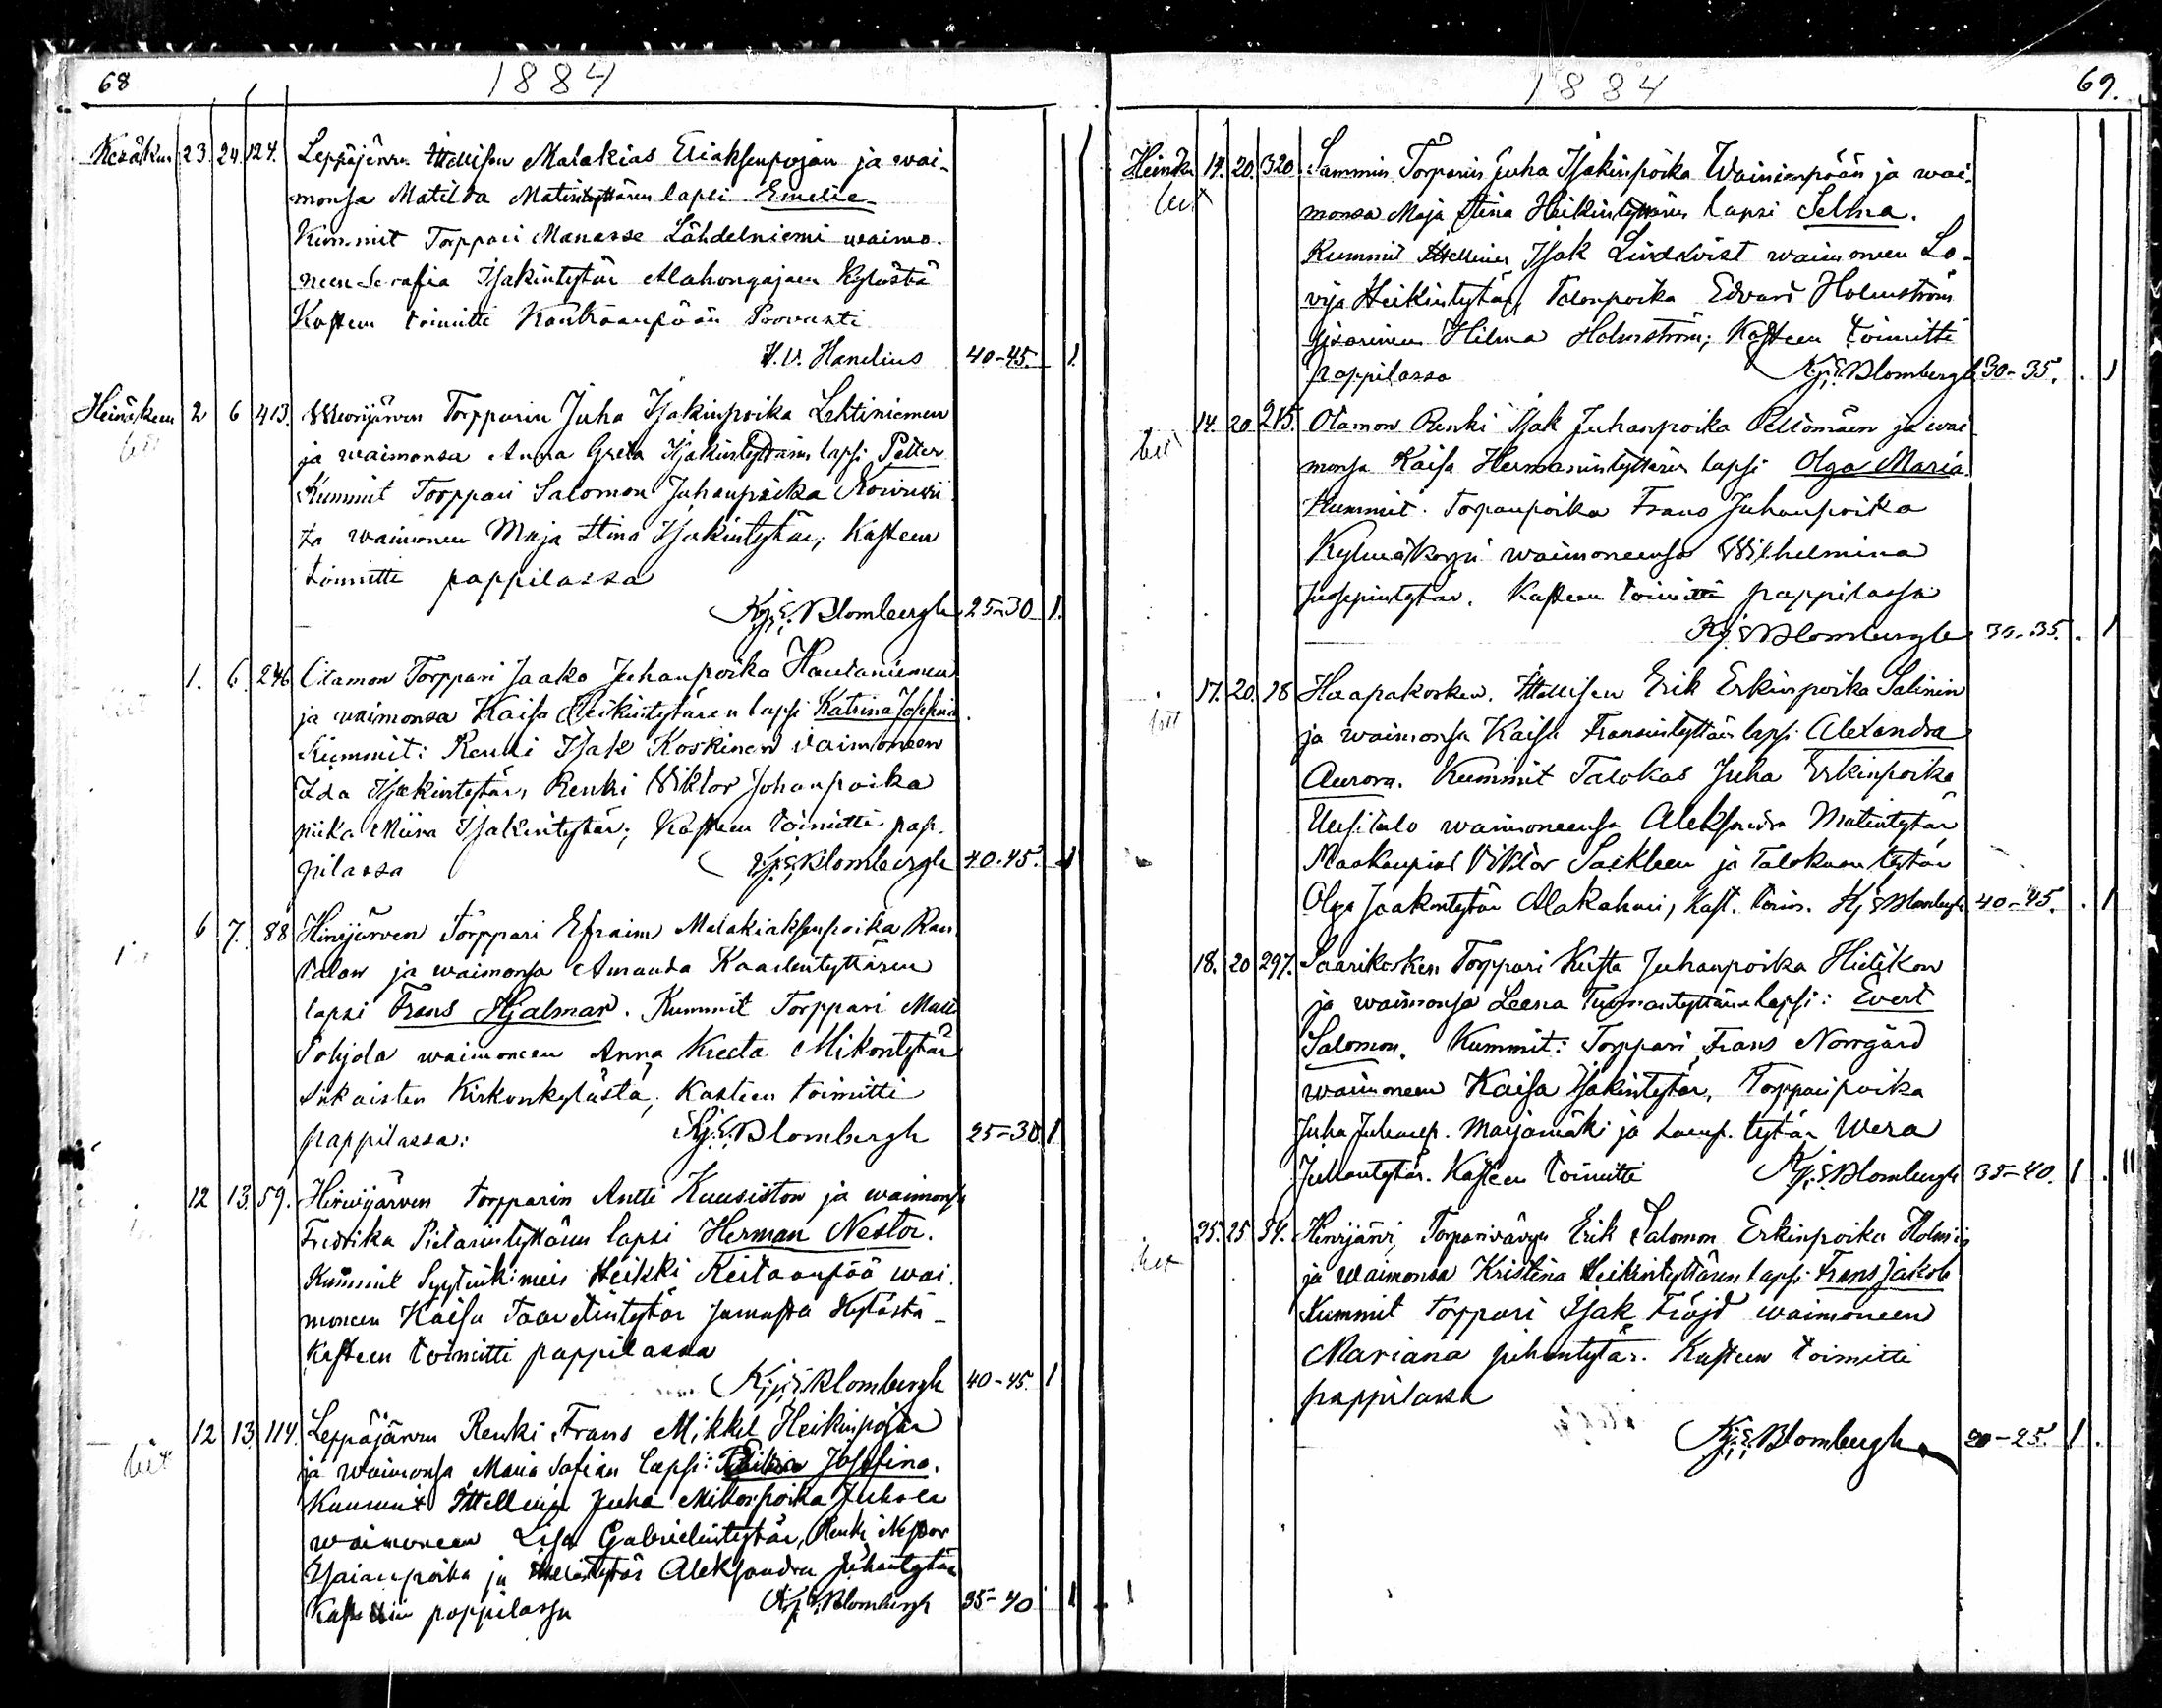 68
1884
Kesäkuu 23. 24. 124. Leppäjärven Ittellisen Malakias Eliaksenpojan ja wai-
monsa Matilda Matintyttären lapsi Emelie
Kummit Torppari Manasse Lähdelniemi waimo-
neen Serafia Isakintytär Alahongajaen Kylästä
Kasteen toimitti Kankaanpään Provasti
K. V. Hanelius 40-45. 1.
Heinäkuu 2 6 413. Torpparin Juha Isakinpoika Lehtiniemen
ja waimonsa Anna Greta Isakintyttären lapsi Petter
Kummit Torppari Salomon Juhanpoika
waimoneen Maja Stina Isakintytär; Kasteen
toimitti pappilassa
Kj. E. Blombergh 25-30 1.
1. 6. 246 Otamon Torppari Jaako Juhanpoika Hautaniemen
ja waimonsa Kaisa Heikintytären lapsi Katrina Josefina.
Kummit: Renki Isak Koskinen vaimoneen
Ida Isakintytär, Renki Viktor Johanpoika
piika Miina Isakintytär; Kasteen toimitti pap-
pilassa Kj. E. Blombergh 40-45. 1
6 7. 88 Hirvijärven Torppari Efraim Malakiaksenpoika Ran-
talan ja waimonsa Amanda Kaarlentyttären
lapsi Frans Hjalmar. Kummit Torppari Matti
Pohjola waimoneen Anna Kreeta Mikontytär
Siikaisten Kirkonkylästä; Kasteen toimitti
pappilassa: Kj. E. Blombergh 25-30. 1
12 13. 59. Hirwijärven torpparin Antti Kuusiston ja waimonsa
Fredrika Pietarintyttären lapsi Herman Nestor.
Kummit Heikki Keitaanpää wai-
moneen Kaisa Taavetintytär Kylästä
Kasteen toimitti pappilassa
Kj. E. Blombergh 40-45. 1
12 13. 114. Leppäjärven Renki Frans Mikkel Heikinpojan
ja waimonsa Maria Sofian lapsi: Josefina.
Kummit Ittellinen Juha Mikonpoika Juhola
waimoneen Lisa Gabrielintytär, Renki Nestor
Esaianpoika ja Aleksandra Juhantytär
Kast. pappilassa Kj. E. Blombergh 35-40 1
1884
69.
Heinäku 14. 20. 320. Sammin Torparin Juha Isakinpoika Wainionpään ja wai-
monsa Maja Stina Heikintyttären lapsi Selma.
Kummit Ittellinen Isak Lindkvist waimoneen Lo-
visa Heikintytär, Talonpoika Edvard Holmström
sisarineen Hilma Holmström; Kasteen toimitti
pappilassa Kj. E. Blombergh 30-35. 1
14. 20 215. Otamon Renki Isak Juhanpoika Peltomäen ja wai-
monsa Kaisa Hermanintyttären lapsi Olga Maria.
Kummit. Torpanpoika Frans Juhanpoika
Kylmäkorpi waimoneensa Wilhelmina
Juosepintytär. Kasteen toimitti pappilassa
Kj. E. Blombergh 30-35. 1
17. 20. 18 Haapakosken. Ittellisen Erik Erkinpoika Salinin
ja waimonsa Kaisa Fransintyttären lapsi Alexandra
Aurora. Kummit Talokas Juha Erkinpoika
Uusitalo waimoneensa Aleksandra Matintytär
Maakaupias Viktor ja Talokaan tytär
Olga Jaakontytär Alakahni, Kast. toim. Kj. E. Blombergh 40-45. 1
18. 20 297. Saarikosken Torppari Kusta Juhanpoika Hietikon
ja waimonsa Leena Tuomantyttären lapsi: Evert
Salomon. Kummit: Torppari Frans Norrgård
waimoneen Kaisa Isakintytär, Torpparipoika
Juha Juhanp. Marjamäki ja tytär Wera
Juhantytär. Kasteen toimitti Kj. E. Blombergh 35-40. 1
25. 25 54. Hirvijärvi, Torparivävyn Erik Salomon Erkinpoika Holmin
ja Waimonsa Kristina Heikintyttären lapsi Frans Jakob
Kummit torppari Isak Fröjd waimoneen
Mariana Juhantytär. Kasteen toimitti
pappilassa
Kj. E. Blombergh 20-25. 1